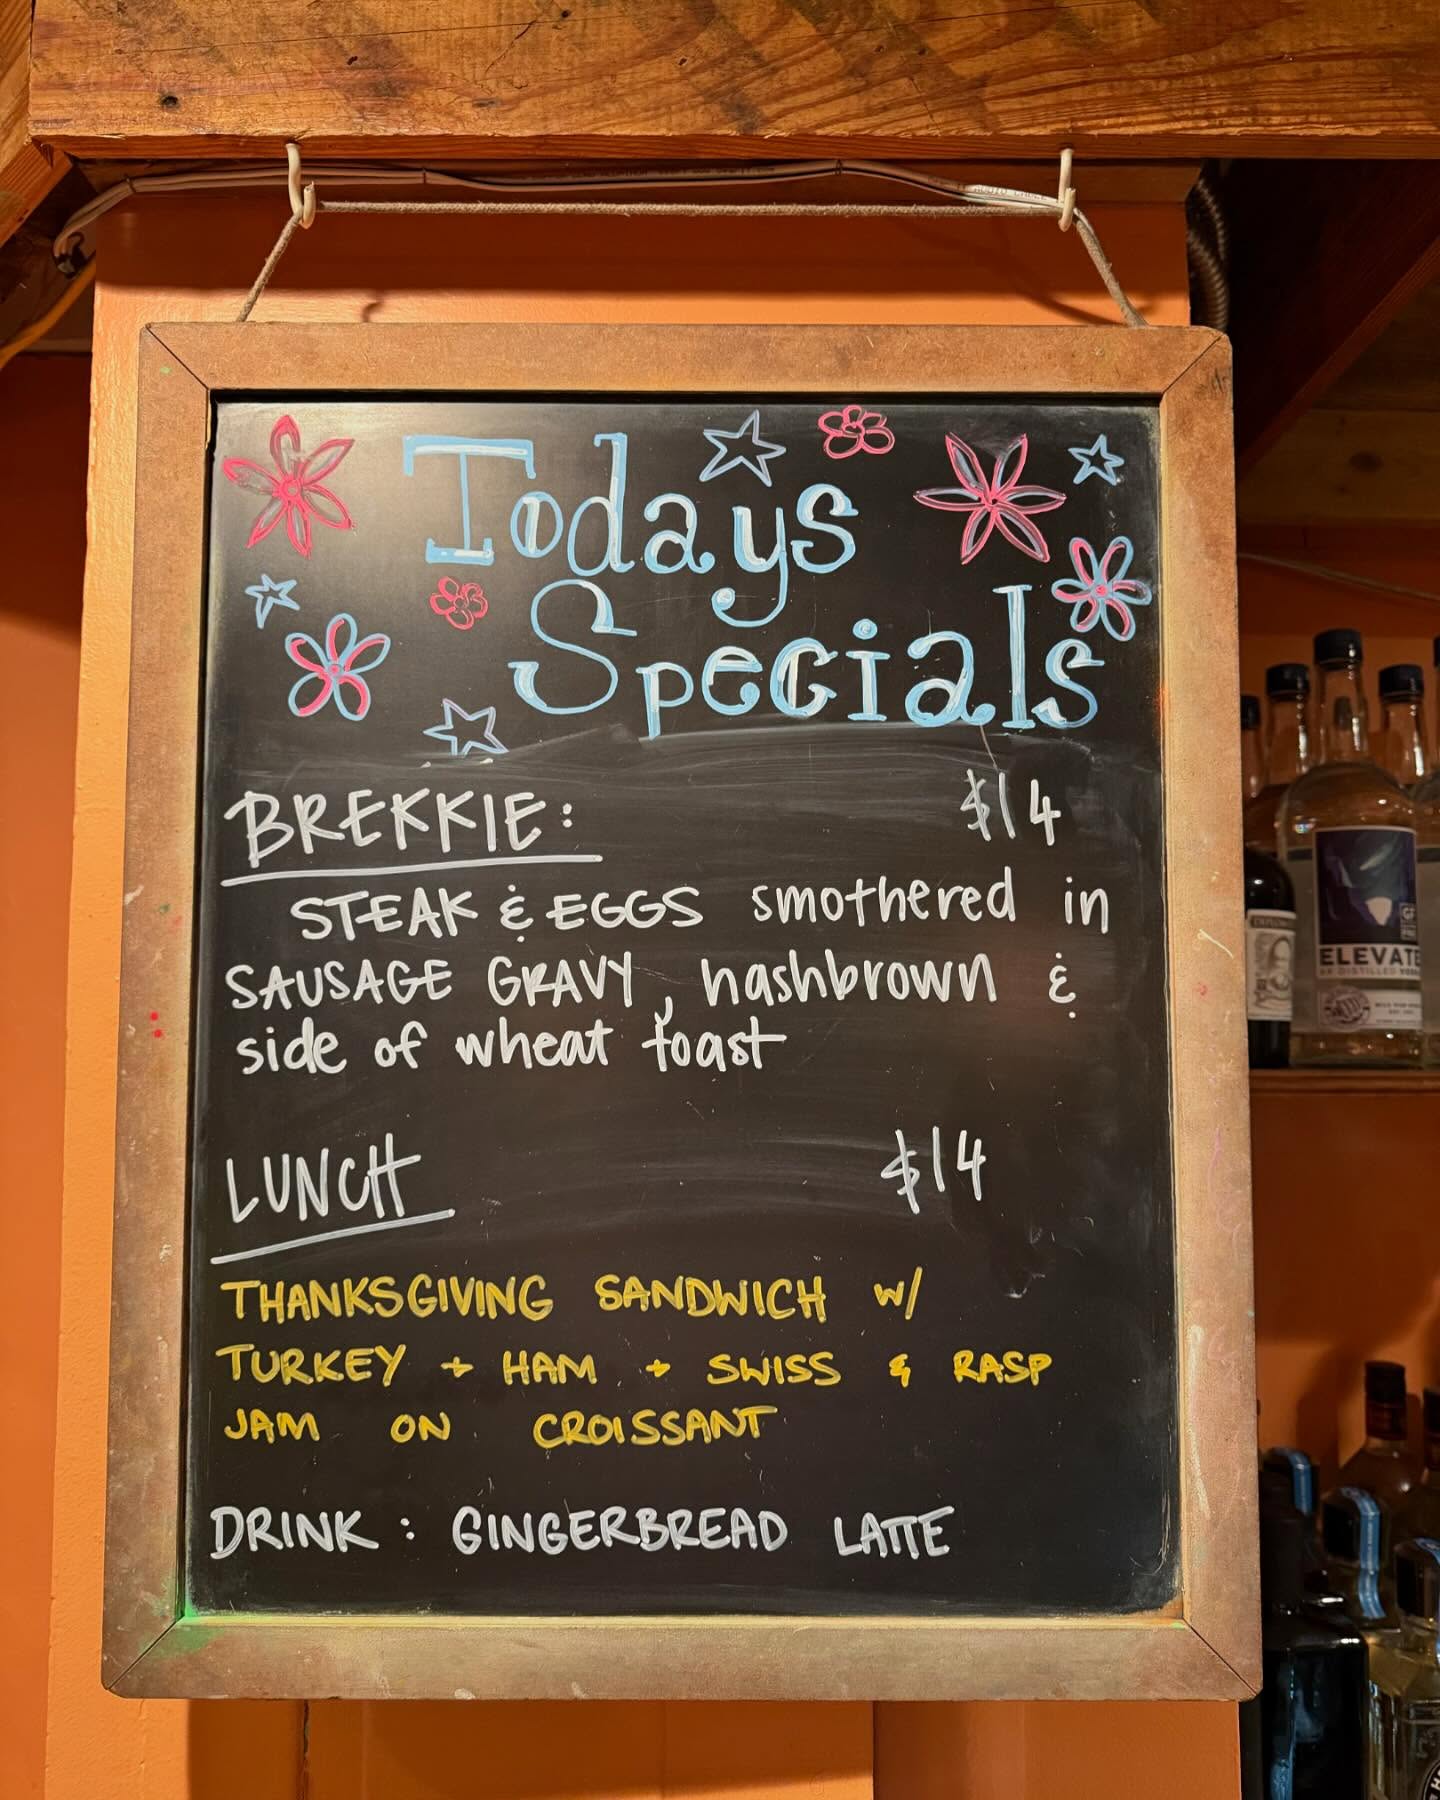 Todays
Specials
BREKKIE: $14
STEAK & EGGS smothered in
SAUSAGE GRAVY, hashbrown &
side of wheat toast
LUNCH $14
THANKSGIVING SANDWICH w/
TURKEY + HAM + SWISS & RASP
JAM ON CROISSANT
DRINK: GINGERBREAD LATTE
ELEVATE